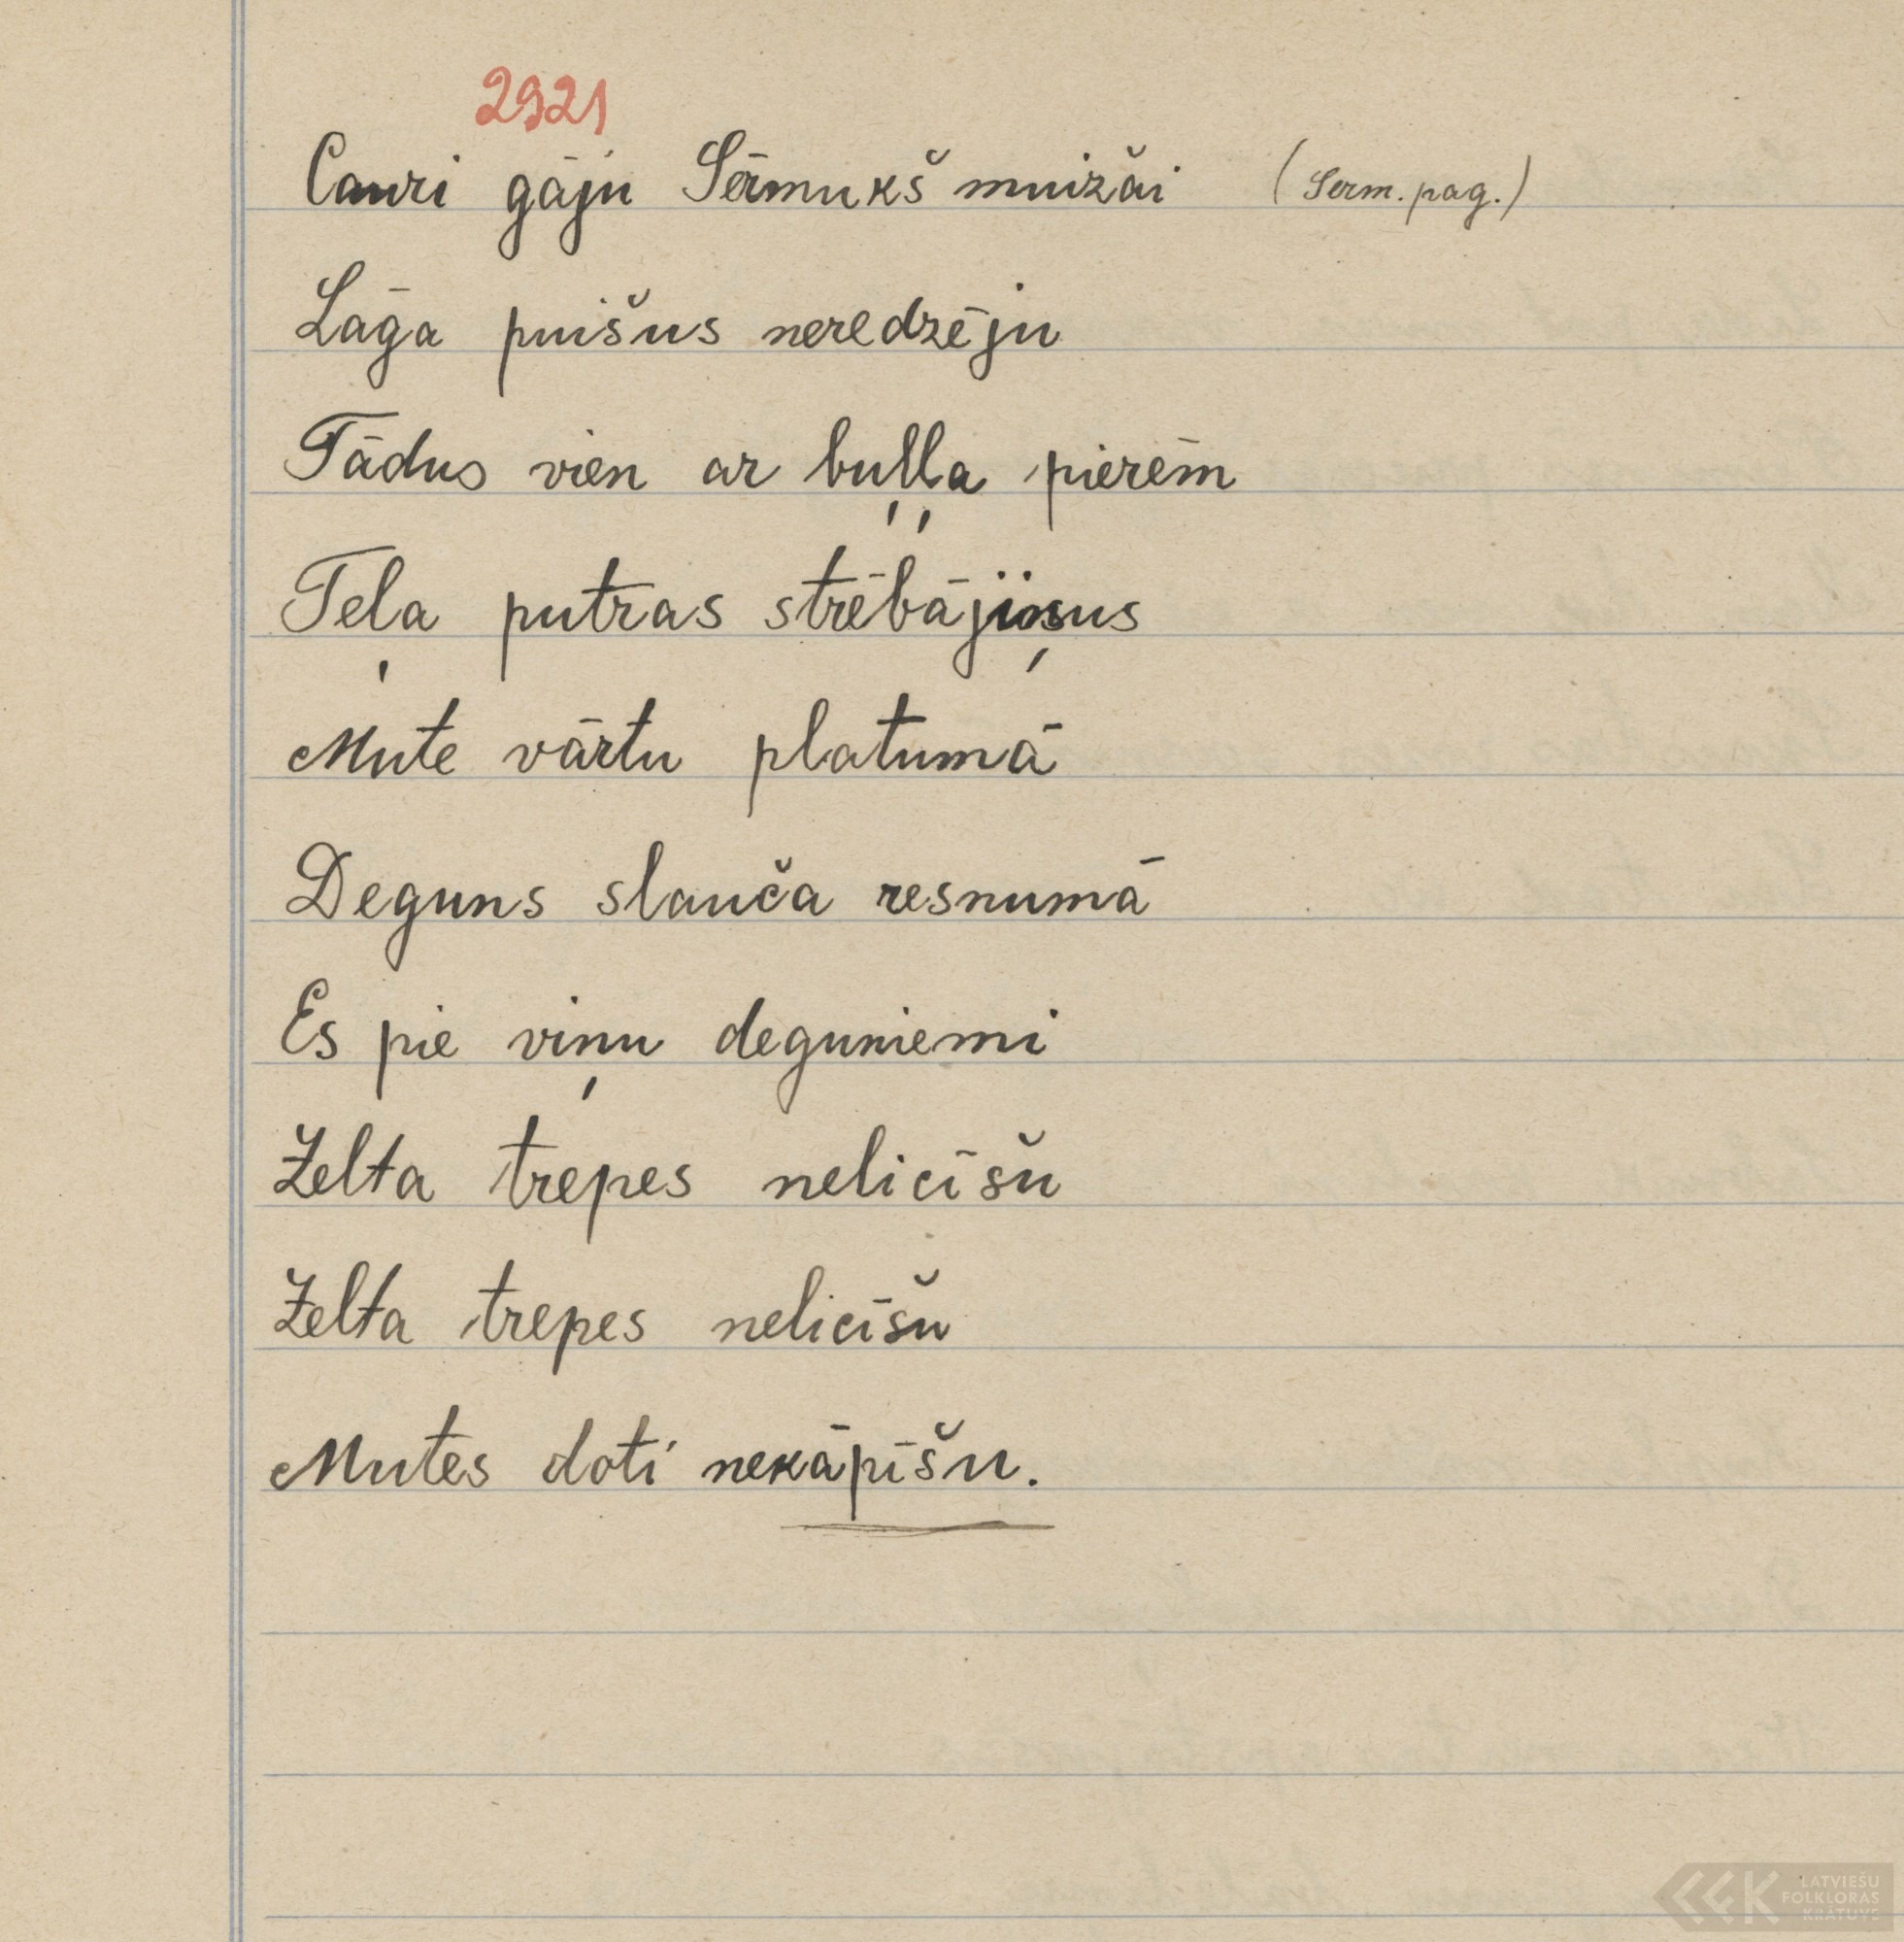 2921
Cauri gāju Sērmukš muižai (Serm. pag.)
Lāga puišus neredzēju
Tādus vien ar buļļa pierēm
Teļa putras strēbājiņus
Mute vārtu platumā
Deguns slauča resnumā
Es pie viņu deguniemi
Zelta trepes nelicīšu
Zelta trepes nelicīšu
Mutes doti nekāpīšu.
LATVIEŠU
FOLKLORAS
KRĀTUVE